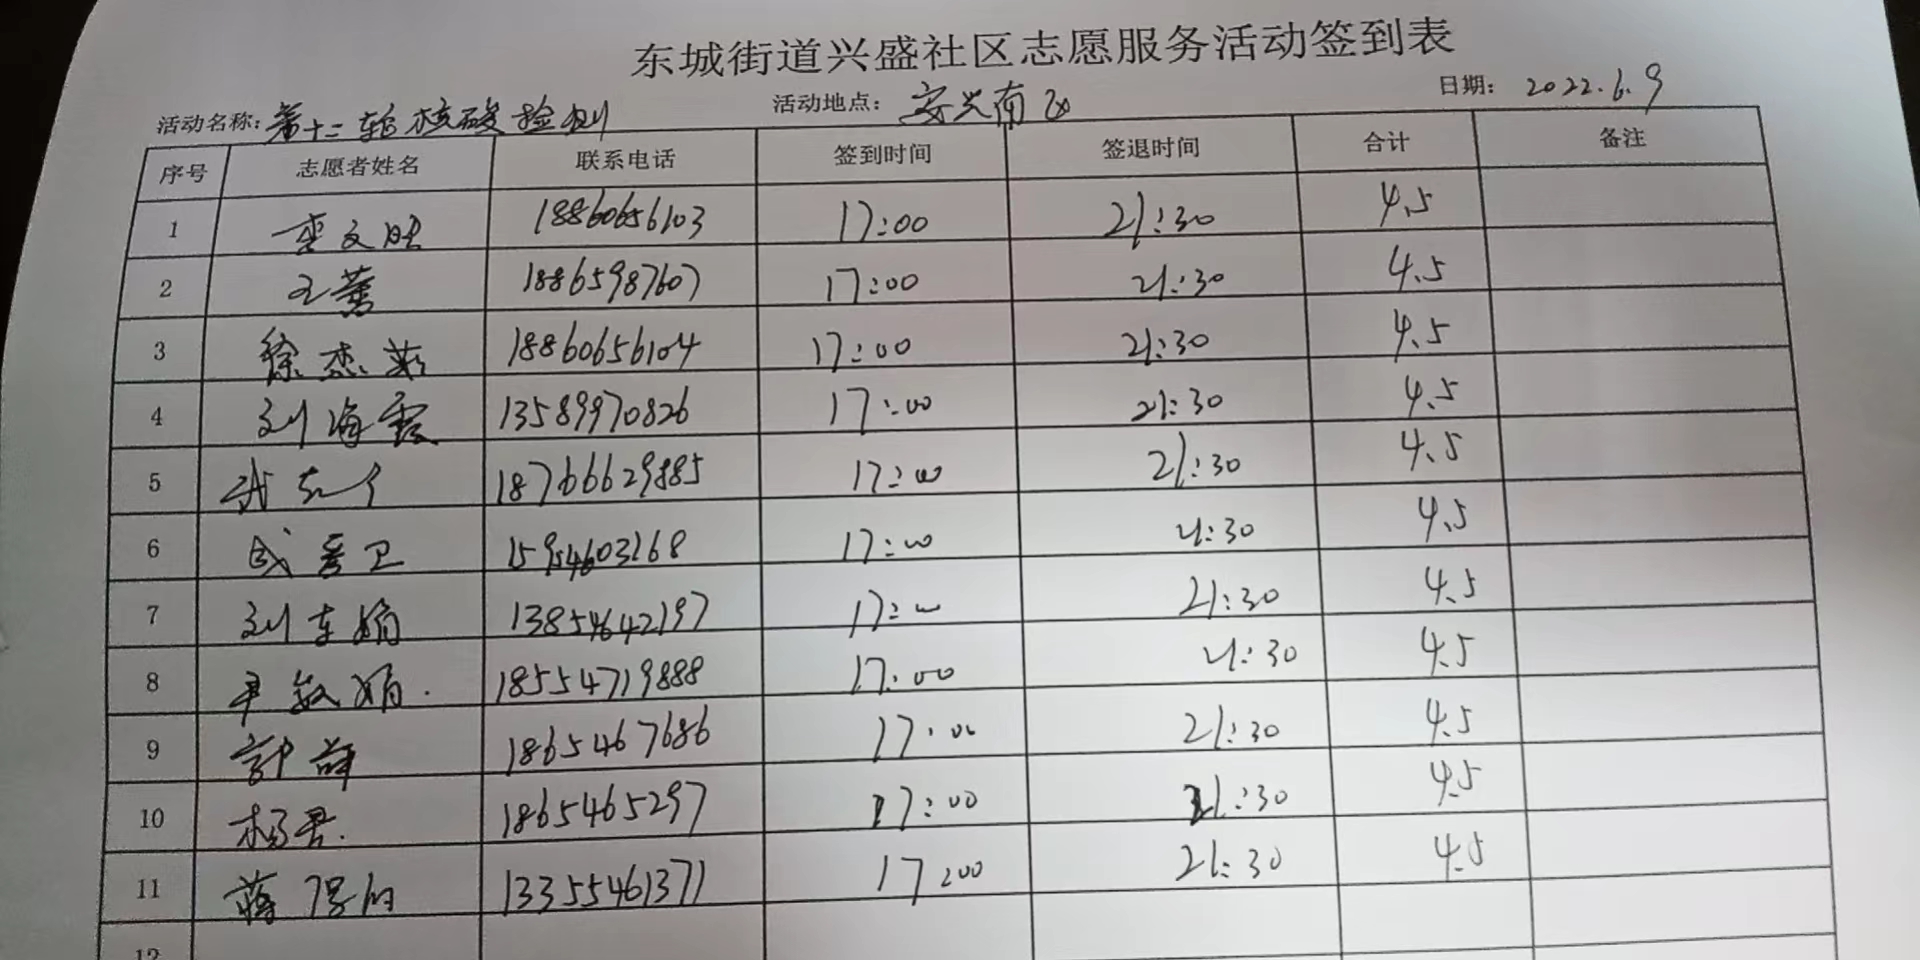 东城街道兴盛社区志愿服务活动签到表
活动名称: 第十二轮核酸检测 活动地点: 安兴南区 日期: 2022.6.9
序号 志愿者姓名 联系电话 签到时间 签退时间 合计 备注
1 李文胜 18860656103 17:00 21:30 4.5
2 王蕾 18865987607 17:00 21:30 4.5
3 徐杰英 18860656104 17:00 21:30 4.5
4 刘海霞 13589970826 17:00 21:30 4.5
5 18766629885 17:00 21:30 4.5
6 成爱卫 15954603268 17:00 21:30 4.5
7 刘东娟 13854642197 17:00 21:30 4.5
8 尹敏娟. 18554719888 17:00 21:30 4.5
9 18654677686 17:00 21:30 4.5
10 杨君. 1865465297 17:00 21:30 4.5
11 蒋 13355461371 17:00 21:30 4.5
12